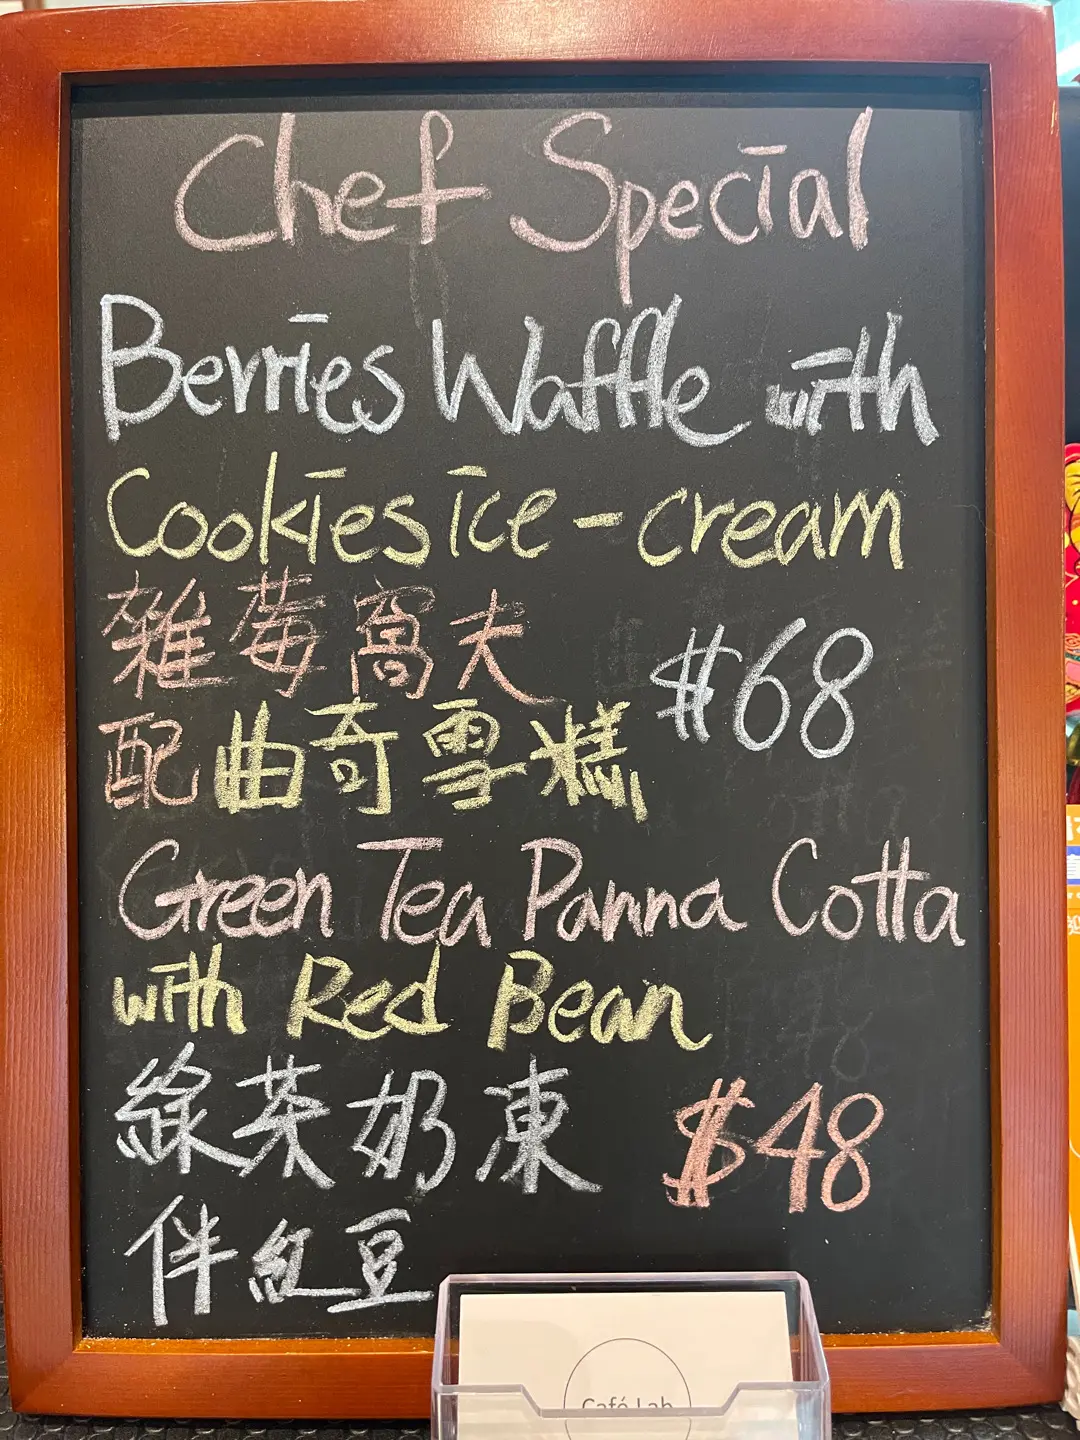 Chef Special
Berries Waffle with
Cookies ice-cream
雜莓窩夫
$68
配曲奇雪糕
Green Tea Panna Cotta
with Red Bean
綠茶奶凍
$48
伴紅豆
Café Lab